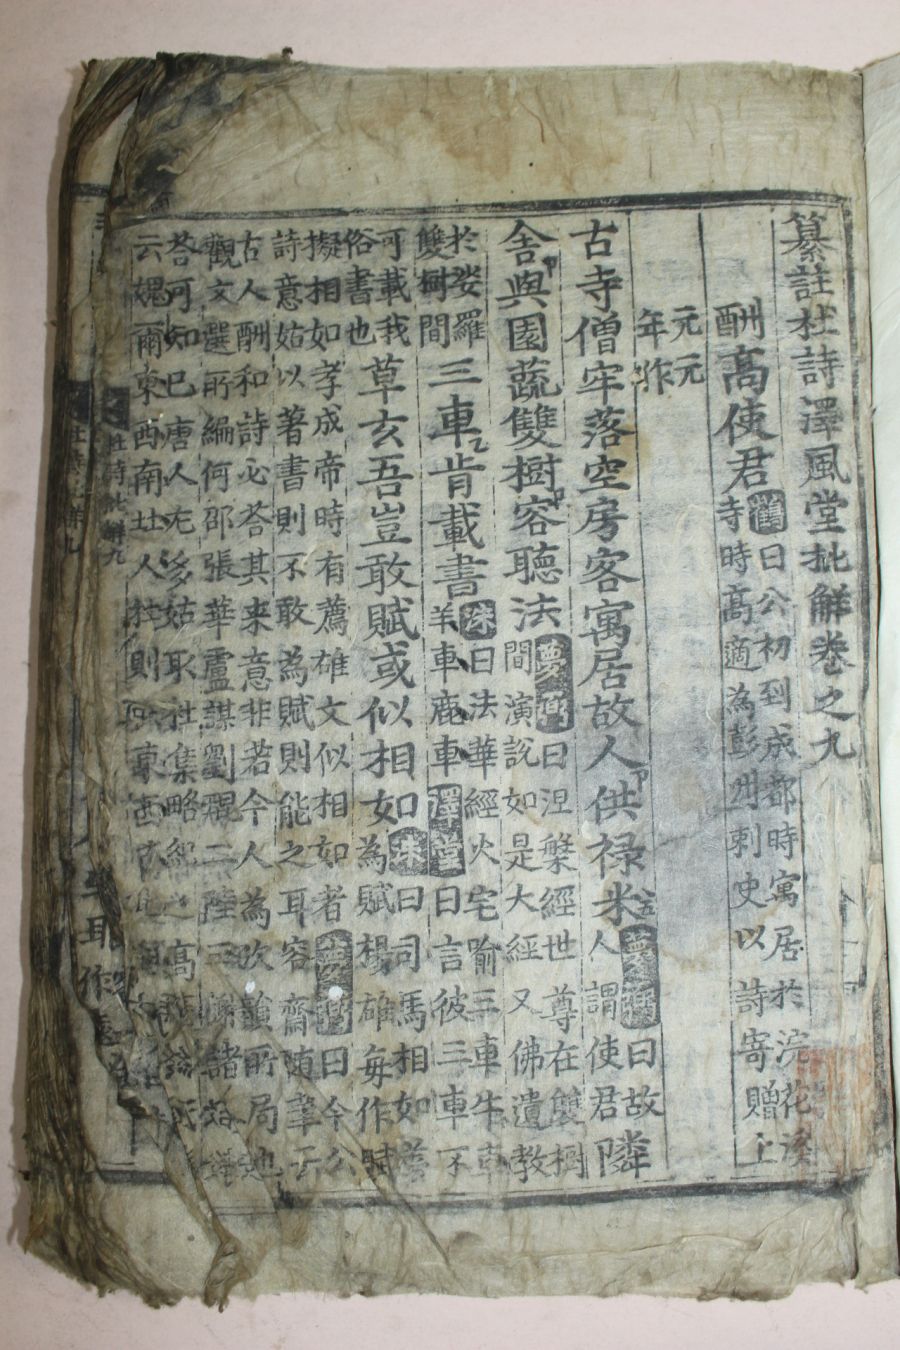 纂註杜詩澤風堂批解卷之九
酬高使君鶴曰公初到成都時寓居於浣花溪
寺時高適為彭州刺史以詩寄贈上
元元
年作
古寺僧牢落空房客寓居故人供禄米
曰故
人謂使君隣
舍與園蔬雙樹容聽法夢弼曰涅槃經世尊在雙樹
間演說如是大經又佛遺教
於娑羅
雙樹間三車肯載書洙曰法華經火宅喻三車牛車
羊車鹿車澤堂曰言彼三車不
可載我
俗書也草玄吾豈敢賦或似相如洙曰司馬相如善
為賦楊雄每作賦
擬相如孝成帝時有薦雄文似相如者
曰今公
詩意姑以著書則不敢為賦則能之耳容齋随筆云
古人酬和詩必答其来意非若今人為次韻所局也
觀文選所編何邵張華盧諶劉琨二陸三謝諸
答可知已唐人尤多姑取杜集略紀之高
云媿爾東西南北人杜則云東西南北
杜詩批解九